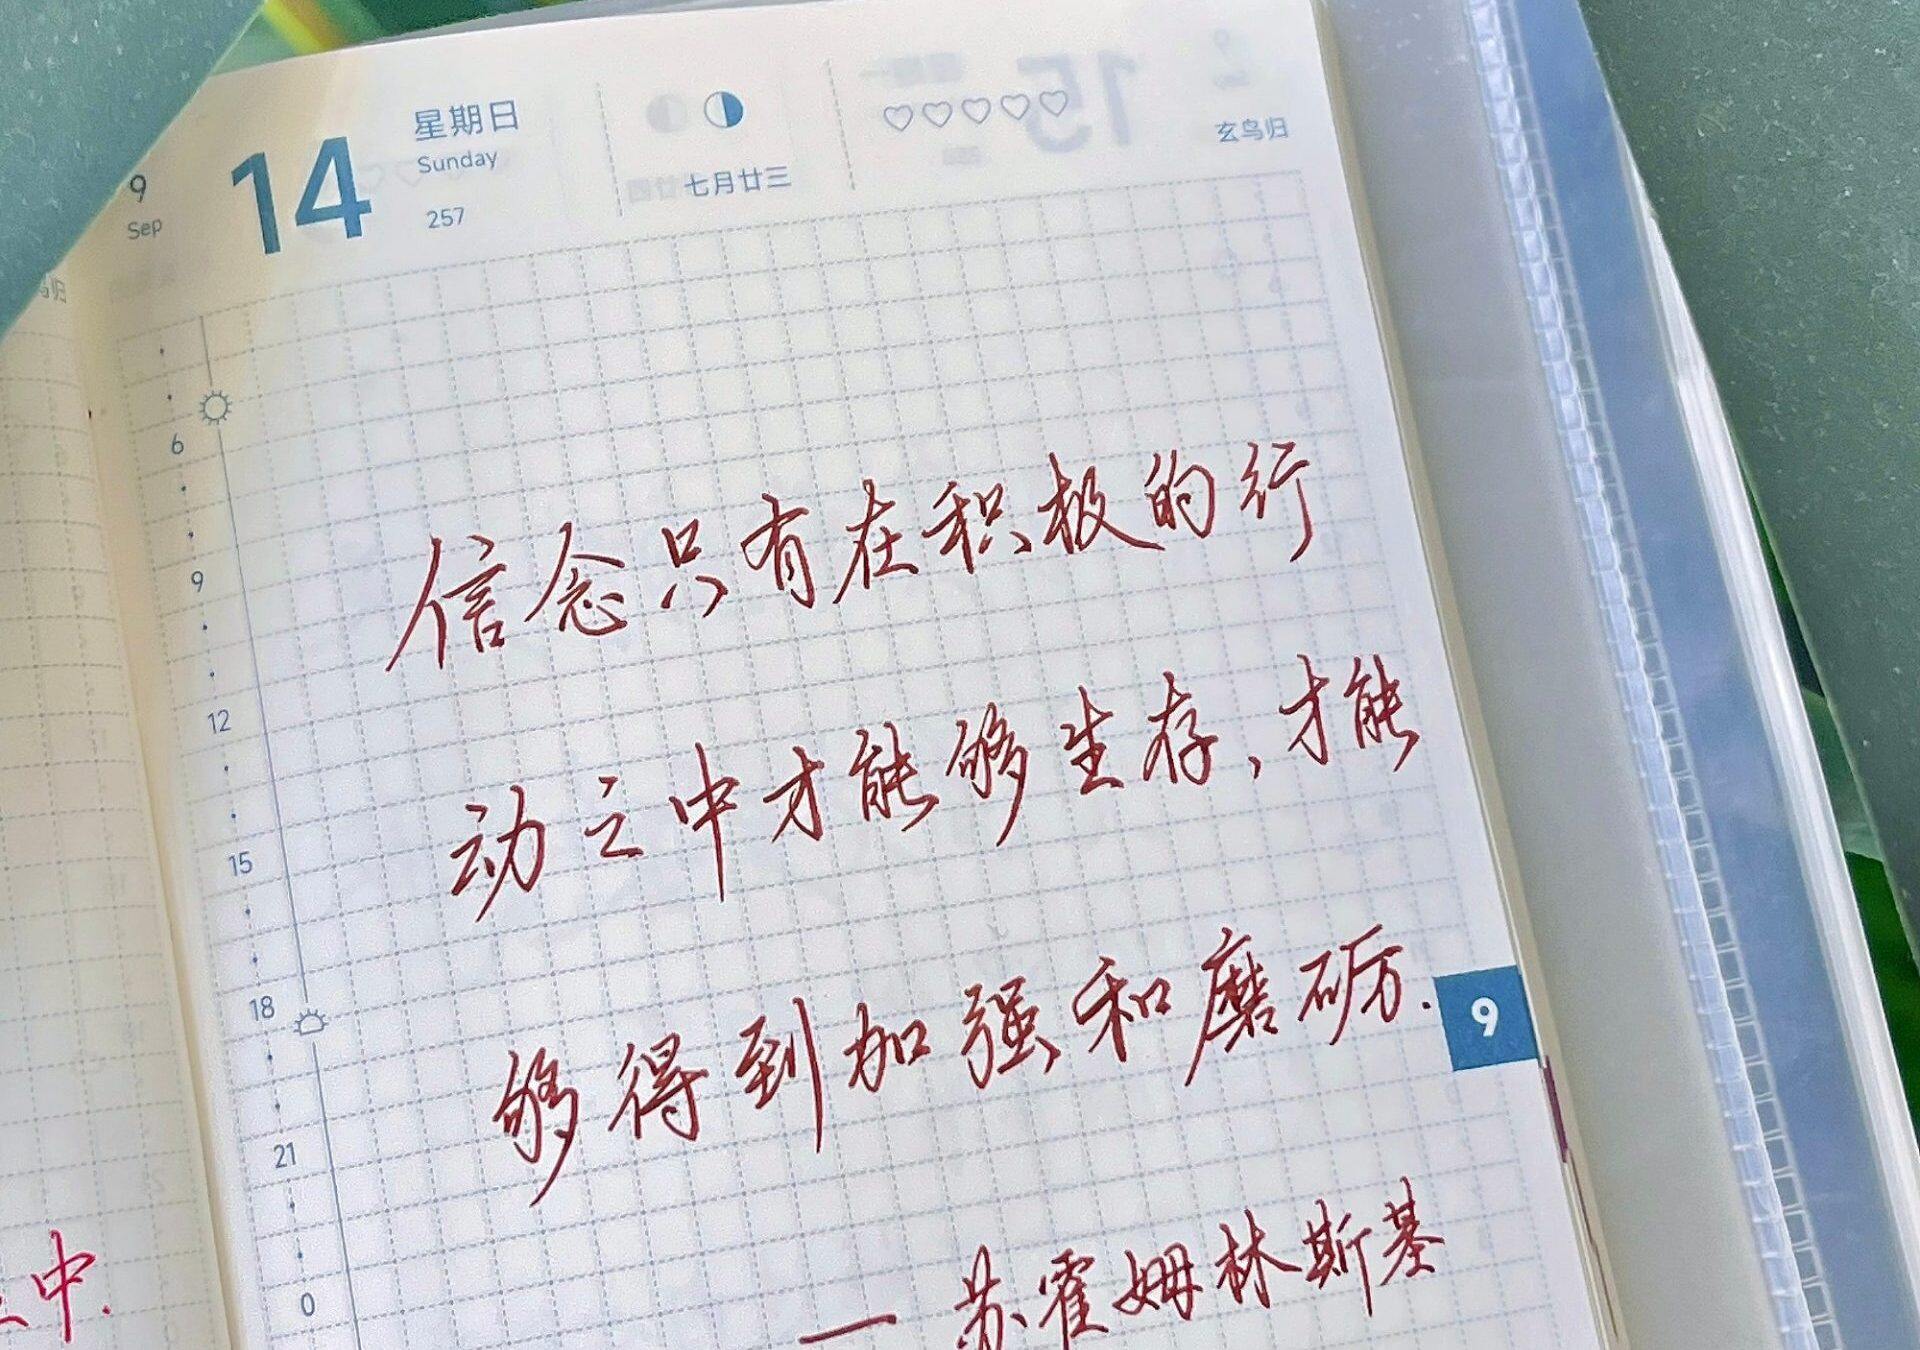 9
Sep
14
星期日
Sunday
257
七月廿三
玄鸟归
6
9
12
15
18
21
0
信念只有在积极的行
动之中才能够生存,才能
够得到加强和磨砺.
—苏霍姆林斯基
9
中.